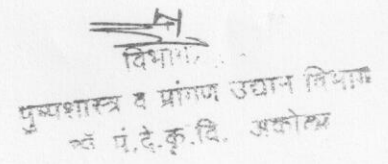 विभाग
पुष्पशास्त्र व प्रांगण उद्यान विभाग
डॉ पं.दे.कृ.वि. अकोला